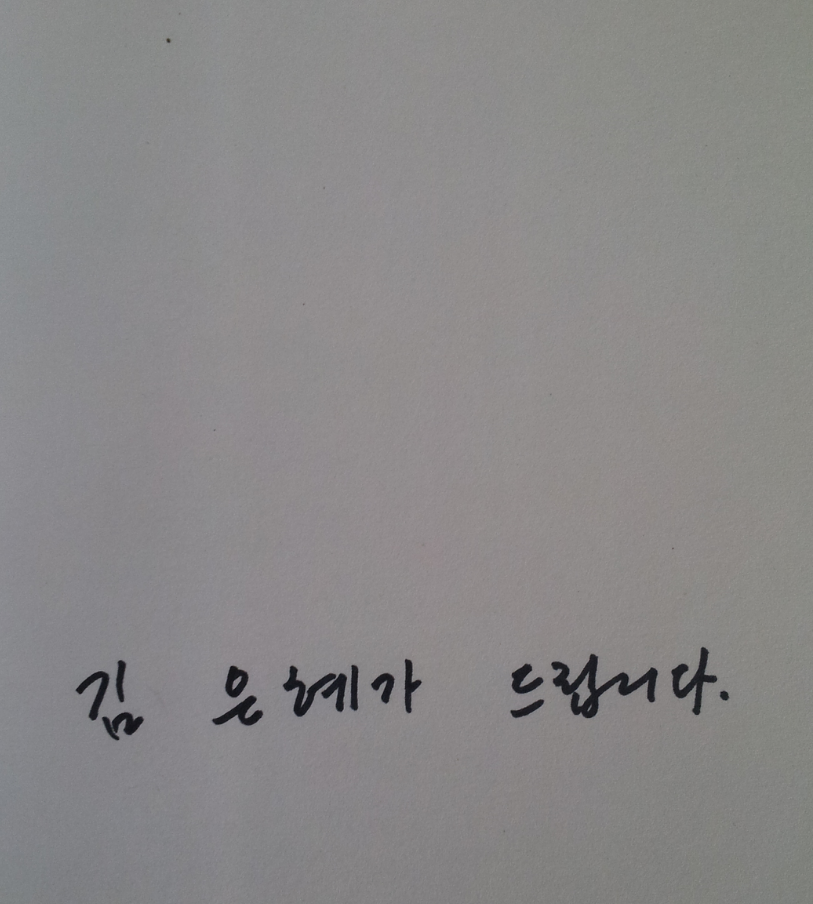 김 은혜가 드립니다.